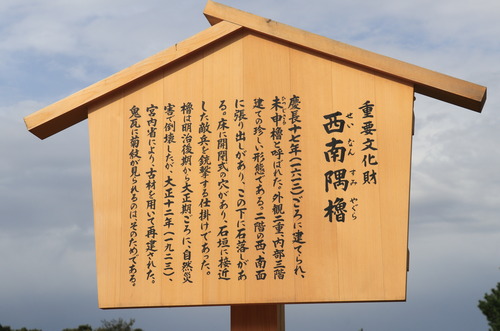 重要文化財
西南隅櫓
せい なん すみ やぐら
慶長十七年(一六一三)ごろに建てられ、
未申櫓と呼ばれた。外観二重、内部三階
ひつじさる
建ての珍しい形態である。二階の西・南面
に張り出しがあり、この下に石落しがあ
る。床に開閉式の穴があり、石垣に接近
した敵兵を銃撃する仕掛けであった。
櫓は明治後期から大正期ごろに、自然災
害で倒壊したが、大正十二年(一九二三)、
宮内省により、古材を用いて再建された。
鬼瓦に菊紋が見られるのは、そのためである。